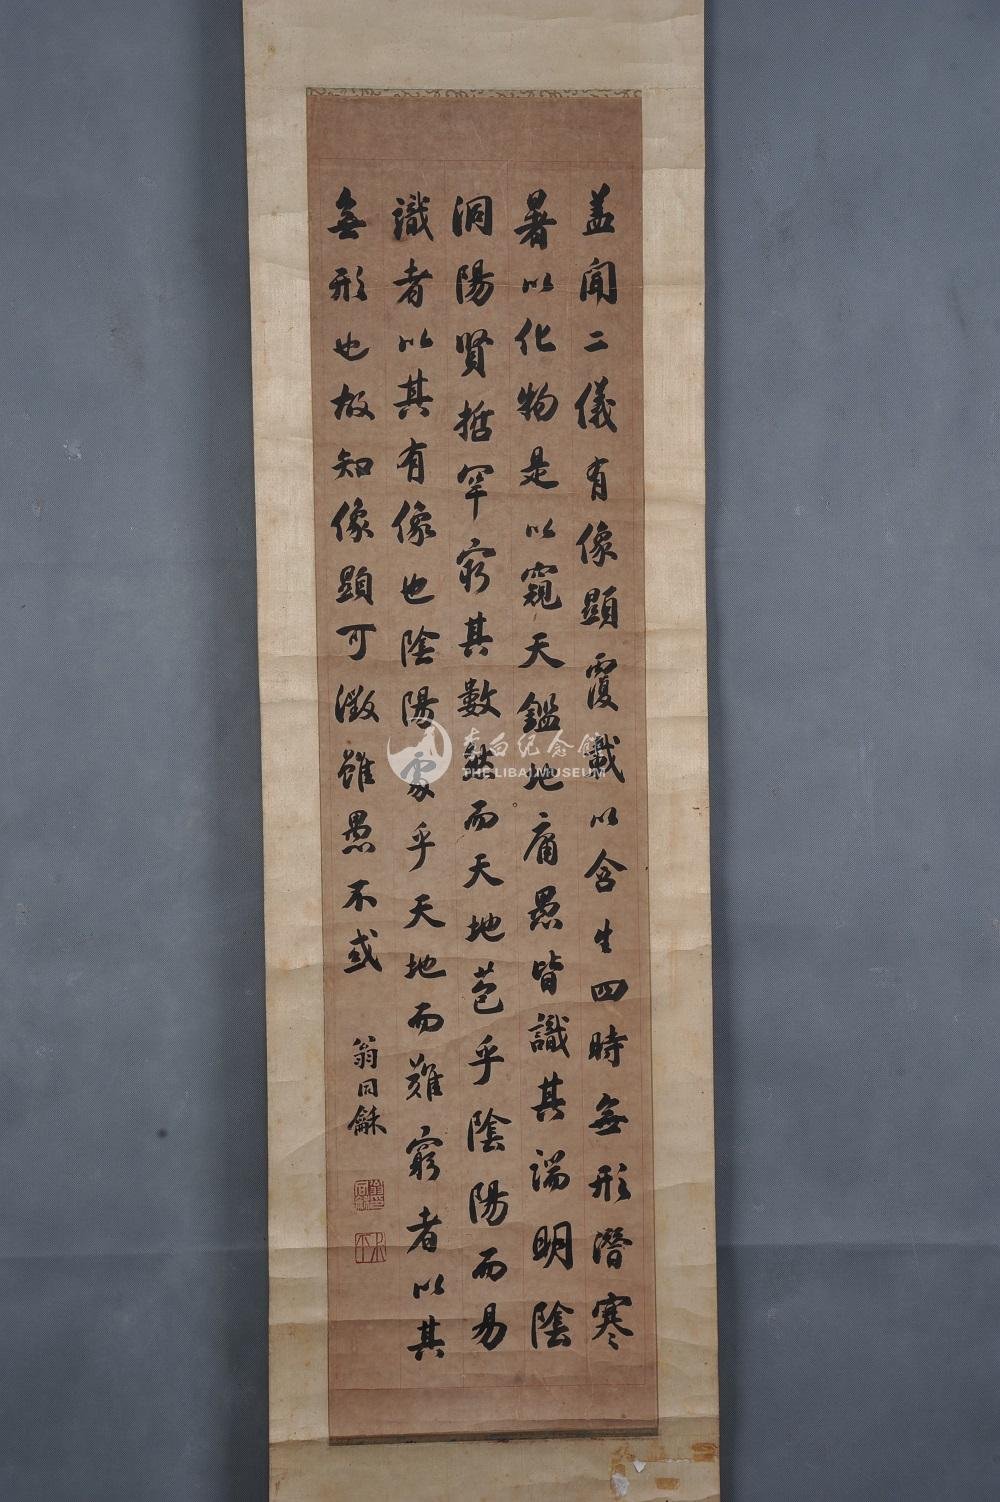 盖闻二儀有像顯覆載以含生四時無形潛寒
暑以化物是以窺天鑑地庸愚皆識其端明陰
洞陽賢哲罕窮其數然而天地苞乎陰陽而易
識者以其有像也陰陽處乎天地而難窮者以其
無形也故知像顯可徵雖愚不或
翁同龢
李白紀念館
THE LIBAI MUSEUM